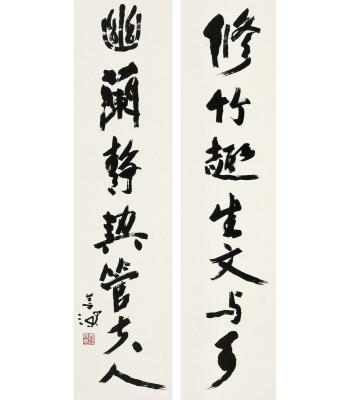 修竹趣生文与可
幽蘭静契管夫人